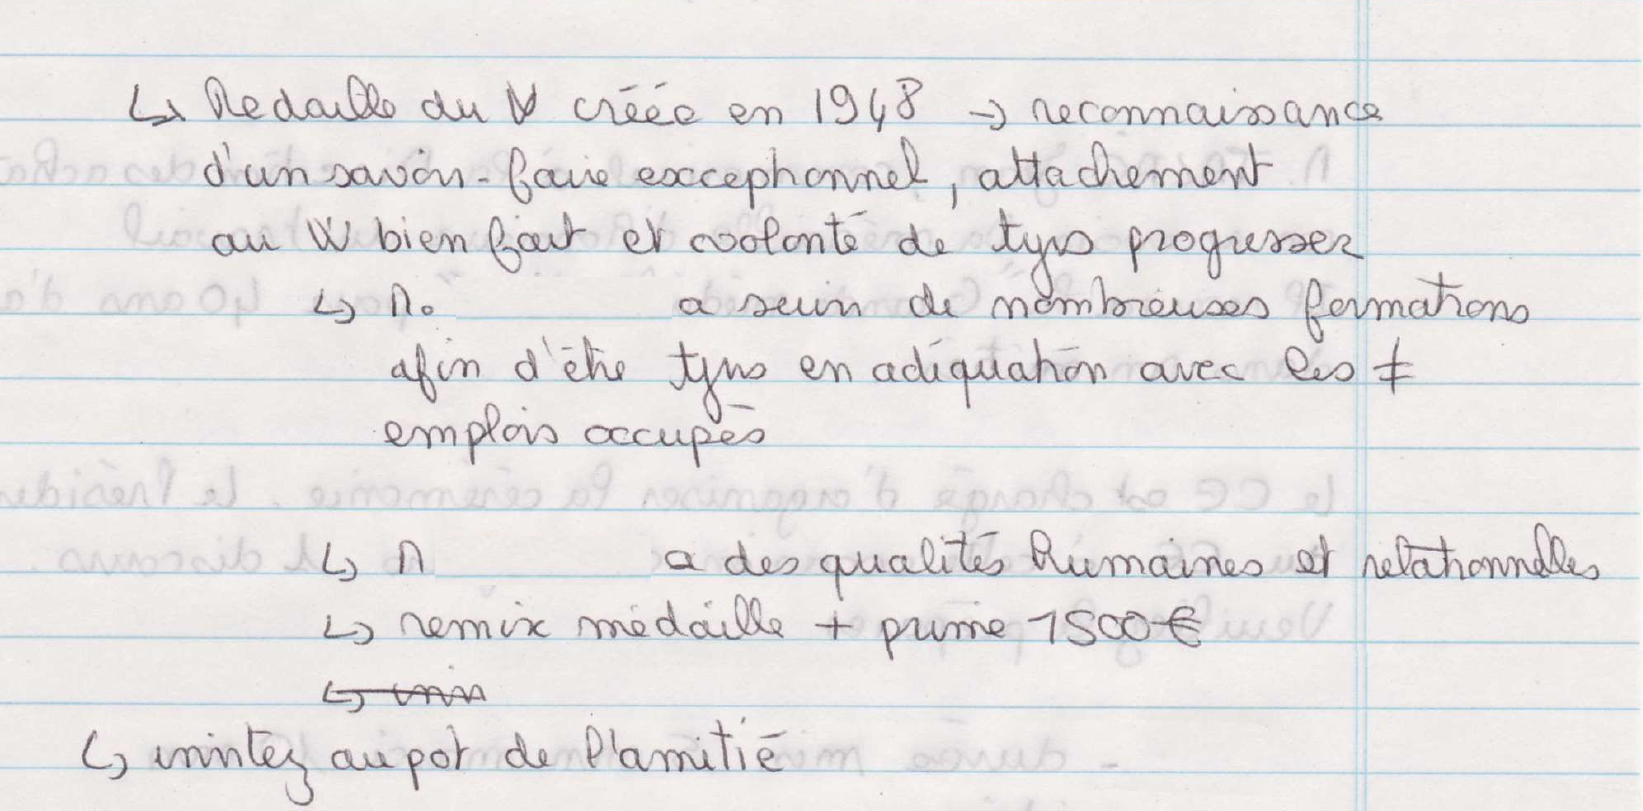 ↳ Medaille du W créée en 1948 → reconnaissance
d'un savoir-faire exceptionnel, attachement
au W bien fait et volonté de tjrs progresser
↳ M. a suivi de nombreuses formations
afin d'être tjrs en adéquation avec les ≠
emplois occupés
↳ M a des qualités humaines et relationnelles
↳ remix médaille + prime 1500 €
↳ invitez au pot de l'amitié